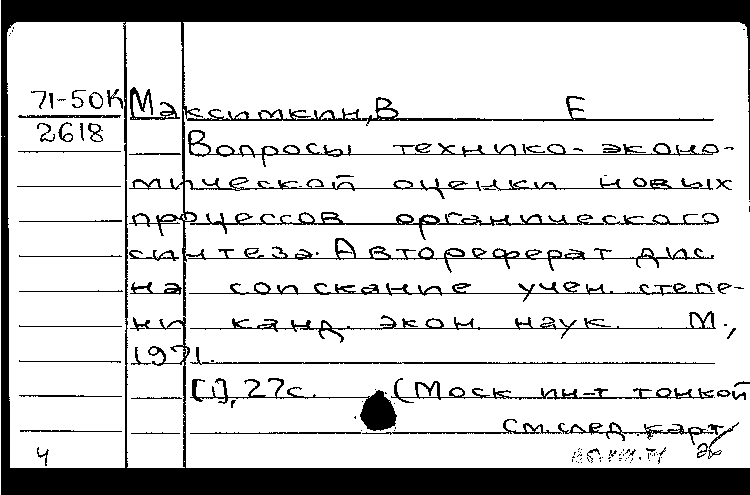 71-50К Максимкин, В Е
2618 Вопросы технико-эконо-
мической оценки новых
процессов органического
синтеза. Автореферат дис.
на соискание учен. степе-
ни канд. экон. наук. М.,
1971.
[1], 27с. (Моск ин-т тонкой
См.след.карт/
4